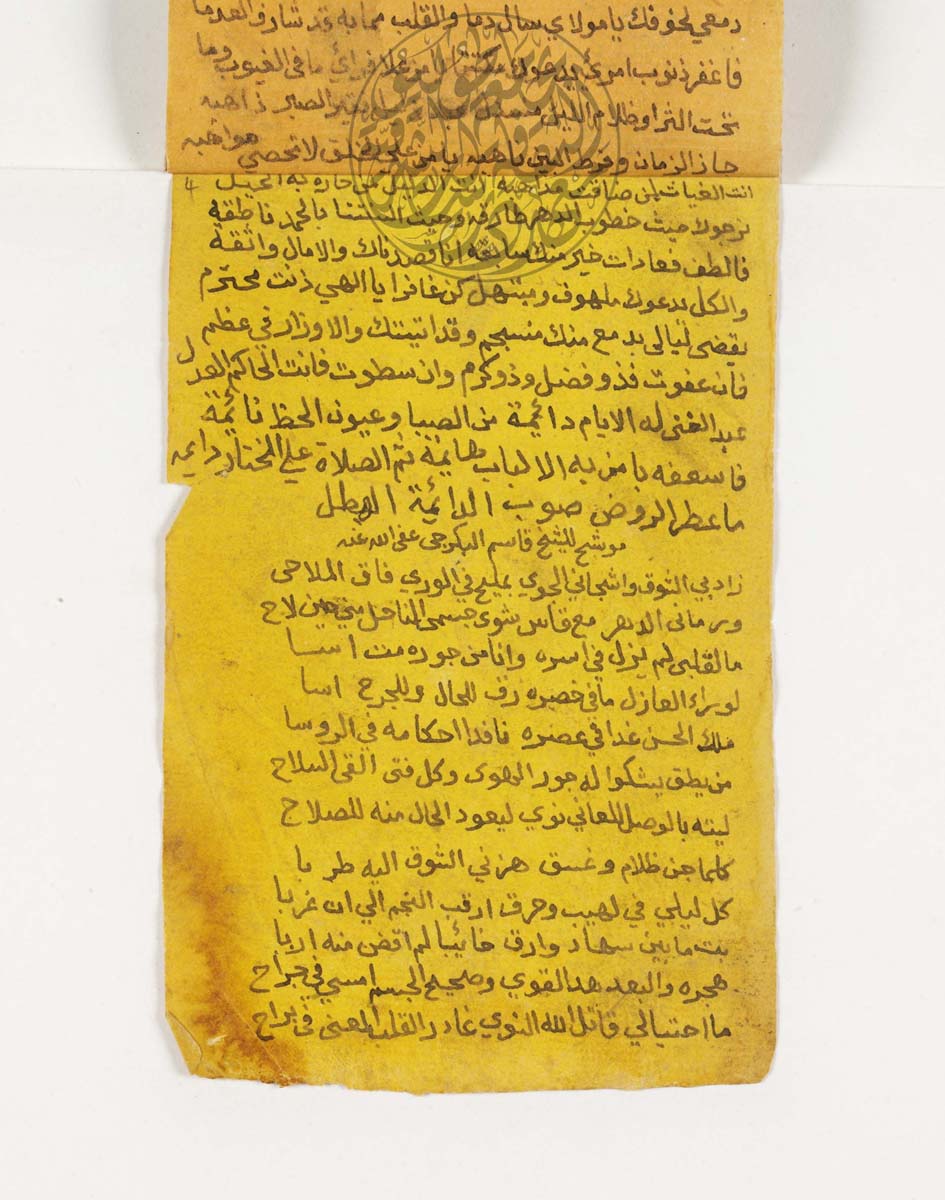 دمعي لخوفك يامولاي سال دما والقلب مما به قد شارف العدما
فاغفر ذنوب امرئ يدعوك يامن يرى ما في الغيوب وما
تحت الثرا وظلام الليل الصبر ذاهبه
جاز الزمان وفرط البين ناهبه يامن على لا تحصى مواهبه
انت الغياث لمن ضاقت مذاهبه انت الدليل لمن حاره به الحيل
نرجولا حيث خطوب الدهر طارقه وحيث السنتنا بالحمد ناطقه
فالطف فعادات خير منك سابقه انا قصدناك والامال واثقة
والكل يدعوك ملهوف ومبتهل كن غافرا يا الهي ذنت محترم
يقضي ليالي بدمع منك منسجم وقد اتيتك والاوزار في عظم
فان عفوت فذو فضل وذو كرم وان سطوت فانت الحاكم العدل
عبد الغنى له الايام دائمة من الصبا وعيون الحظ نائمة
فاسعفه يا من به الالباب هايمة ثم الصلاة على المختار دايمه
ماعطر الروض صوب الدائمة الهطل
موشح للشيخ قاسم البكرجي عفى الله عنه
زاد بي الشوق واشجاني الجوي بمليح في الوري فاق الملاحى
ورماني الدهر مع قاس شوى جسمي الناحل مني حين لاح
ما لقلبي لم يزل في اسره وانا من جوره مت اسا
لويراء العازل ما في خصره رق للحال وللجرح اسا
ملك الحسن غدا في عصره نافدا احكامه في الروسا
من يطق يشكوا له جور الهوى وكل فتى القى السلاح
ليته بالوصل للعاني نوي ليعود الحال منه للصلاح
كلما جن ظلام وغسق هزني الشوق اليه طربا
كل ليلي في لهيب وحرق ارقب النجم الي ان غربا
بت ما بين سهاد وارق خائبا لم اقض منه اربا
هجره والبعد هد القوي وصحيح الجسم امسي في جراح
ما احتيالي قاتل الله النوي غادر القلب المعنى في براح